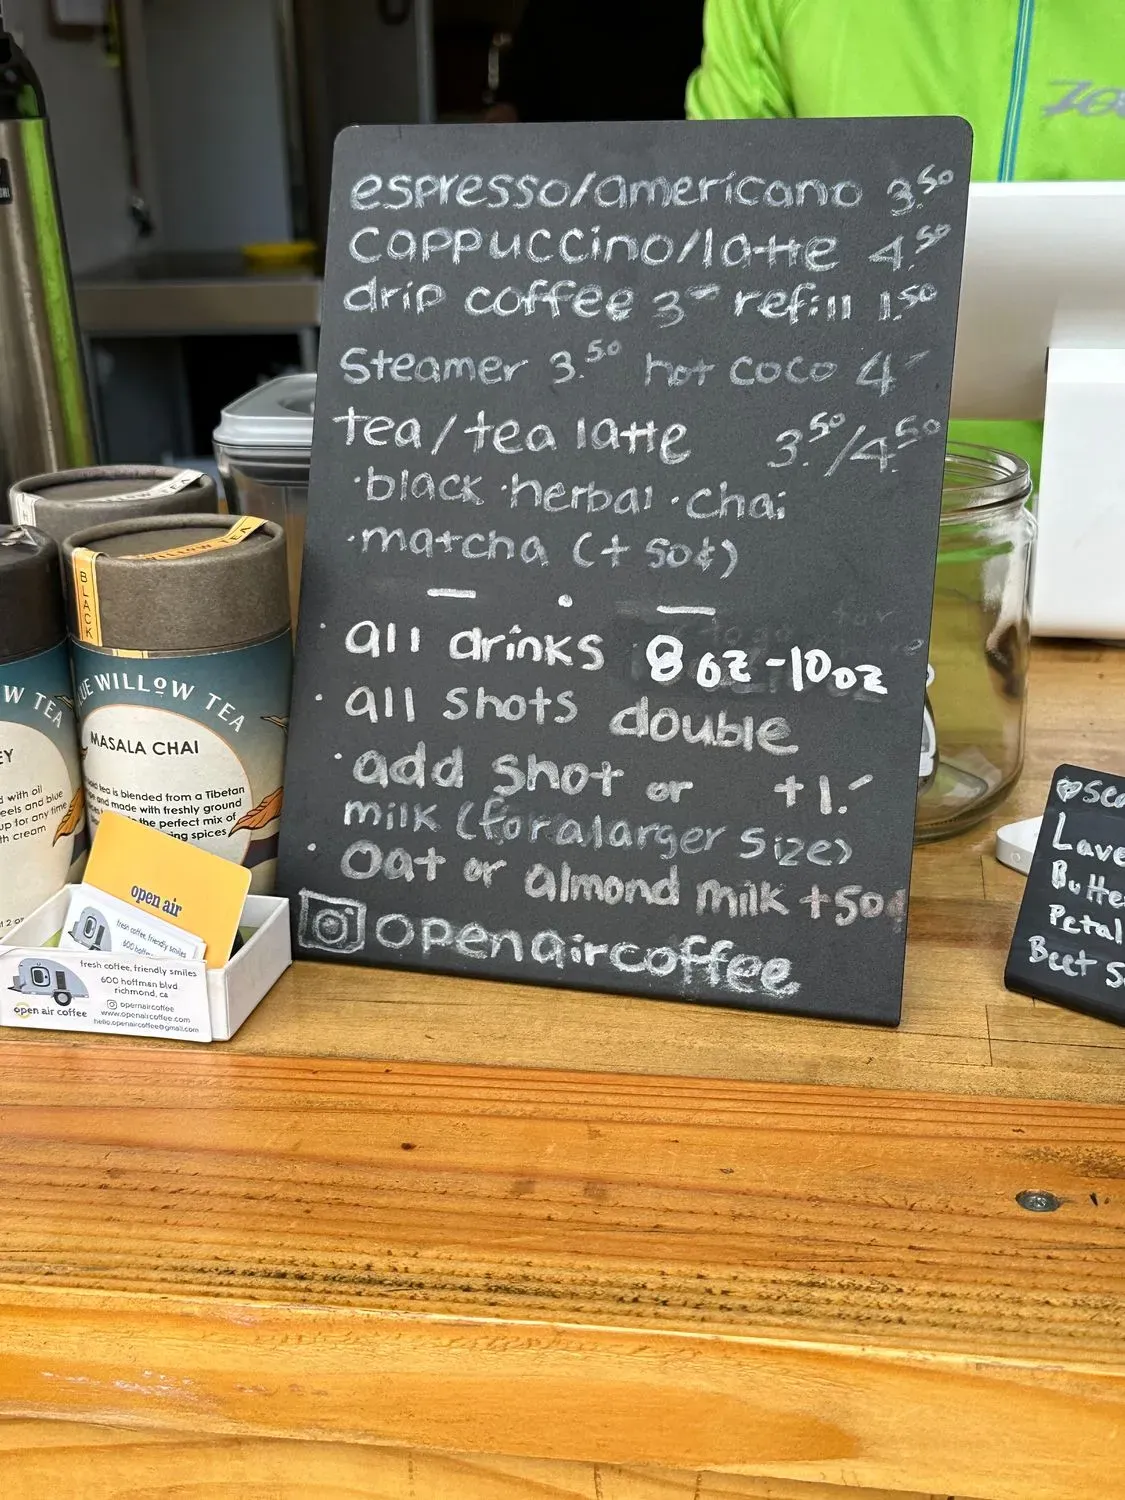 espresso/americano 3.50
cappuccino/latte 4.50
drip coffee 3- refill 1.50
steamer 3.50 hot coco 4-
tea/tea latte 3.50/4.50
·black ·herbal ·chai
·matcha (+ 50¢)
— · —
· all drinks 8oz-10oz
· all shots double
· add shot or +1.-
milk (for a larger size)
· oat or almond milk +50¢
openaircoffee
BLACK
WILLOW TEA
WILLOW TEA
MASALA CHAI
tea is blended from a Tibetan
and made with freshly ground
the perfect mix of
spices
W TEA
EY
with oil
and blue
up for any time
cream
open air
fresh coffee, friendly smiles
600
fresh coffee, friendly smiles
600 hoffman blvd.
richmond, ca
openaircoffee
www.openaircoffee.com
hello.openaircoffee@gmail.com
open air coffee
Petal
Beet